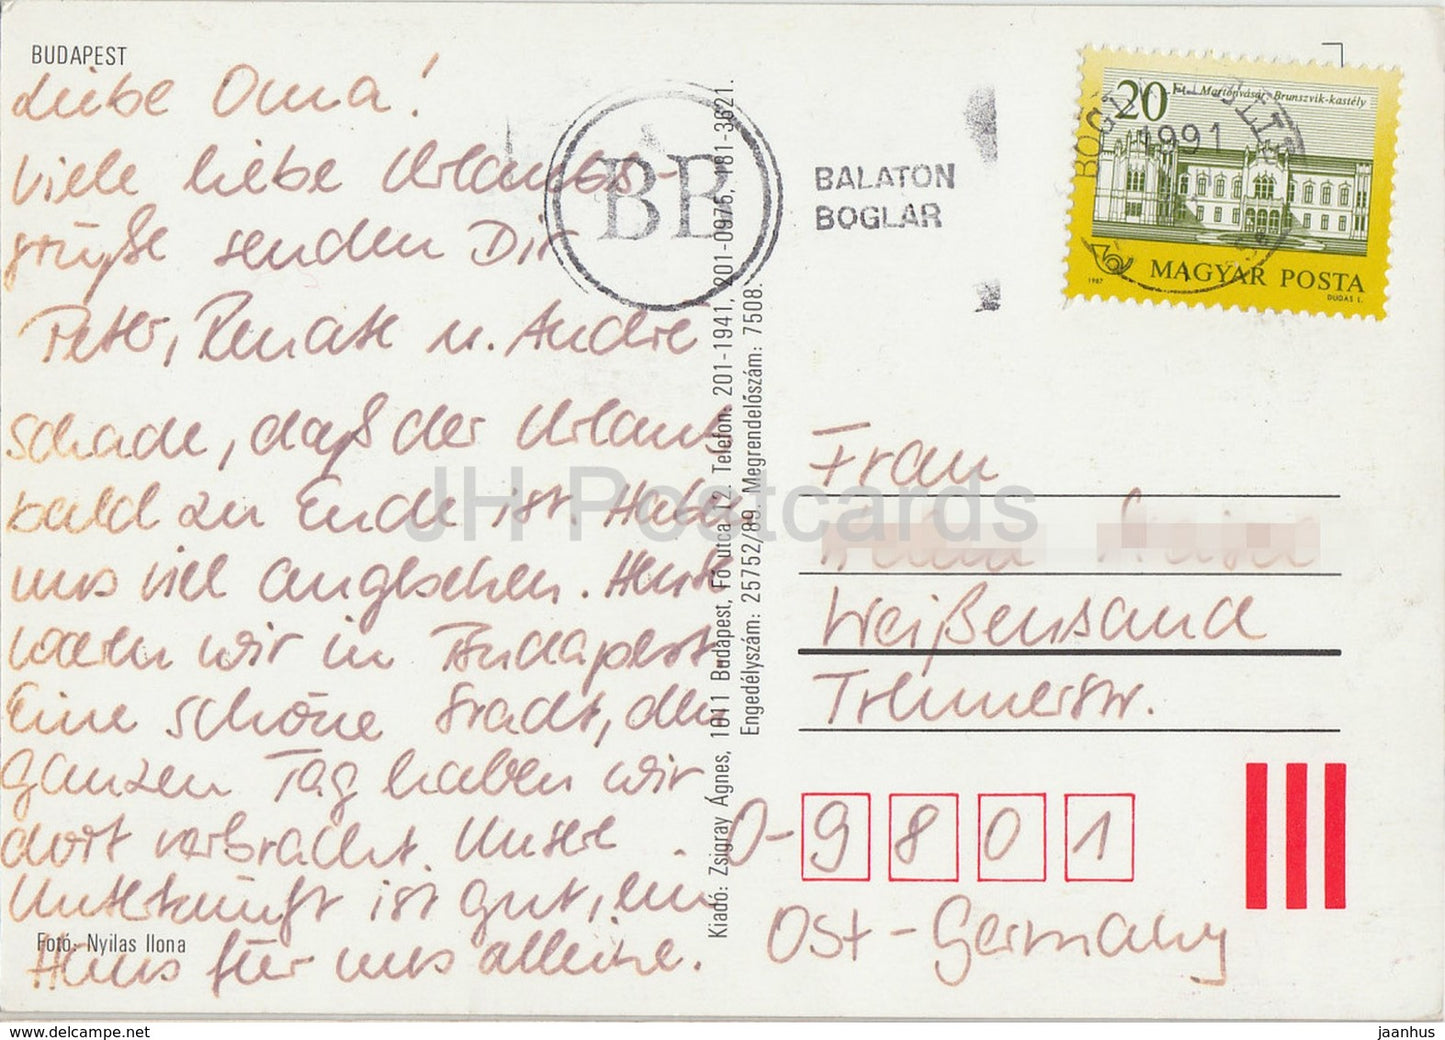 BUDAPEST
Liebe Oma!
Viele liebe Urlaubs-
grüße senden Dir
Peter, Renate u. Andre
Schade, daß der Urlaub
bald zu Ende ist. Haben
uns viel angesehen. Heute
waren wir in Budapest.
Eine schöne Stadt, den
ganzen Tag haben wir
dort verbracht. Unsere
Unterkunft ist gut, ein
Haus für uns alleine.
Foto: Nyilas Ilona
Kiadó: Zsigray Ágnes, 1011 Budapest, Fő utca 12. Telefon: 201-1941, 201-0975, 181-3621.
Engedélyszám: 25752/89. Megrendelőszám: 7508.
BB
BALATON
BOGLÁR
1991
20 Ft Martonvásár Brunszvik-kastély
MAGYAR POSTA
1987
DUDÁS L.
Frau
Weißensand
O-9801
Ost-Germany
JH Postcards
www.delcampe.net
jaanhus